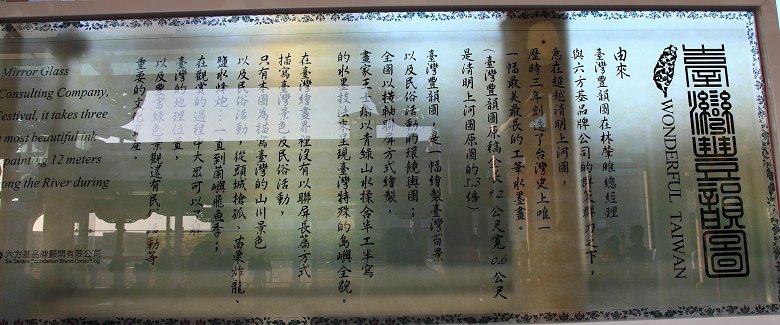 臺灣豐韻圖
WONDERFUL TAIWAN
由來
臺灣豐韻圖在林榮睢總經理
與六方基品牌公司的群策群力之下，
意在超越清明上河圖，
歷時三年創造了台灣史上唯一
一幅最美最長的工筆水墨畫。
(臺灣豐韻圖原稿 12公尺寬0.6公尺
是清明上河圖原圖的5.3倍)
臺灣豐韻圖是一幅繪製臺灣百景
以及民俗活動的環繞輿圖；
全圖以橫軸聯屏方式繪製，
畫家王士瑜以青綠山水揉合半工半寫
的水墨技法來呈現臺灣特殊的島嶼全貌。
在臺灣繪畫界裡沒有以聯屏長篇方式
描寫臺灣景色及民俗活動，
只有本圖為描寫臺灣的山川景色
以及民俗活動 從頭城搶孤、苗栗炸龍、
鹽水蜂炮…一直到蘭嶼飛魚季；
在觀賞的過程中大眾可以
臺灣的地理位置，
以及豐富綠色景觀還有民 活動等
重要的文化 產。
Mirror Glass
Consulting Company,
estival, it takes three
most beautiful ink
painting 12 meters
ong the River during
六方基品牌顧問有限公司
Six Senses Foundation Brand Consulting